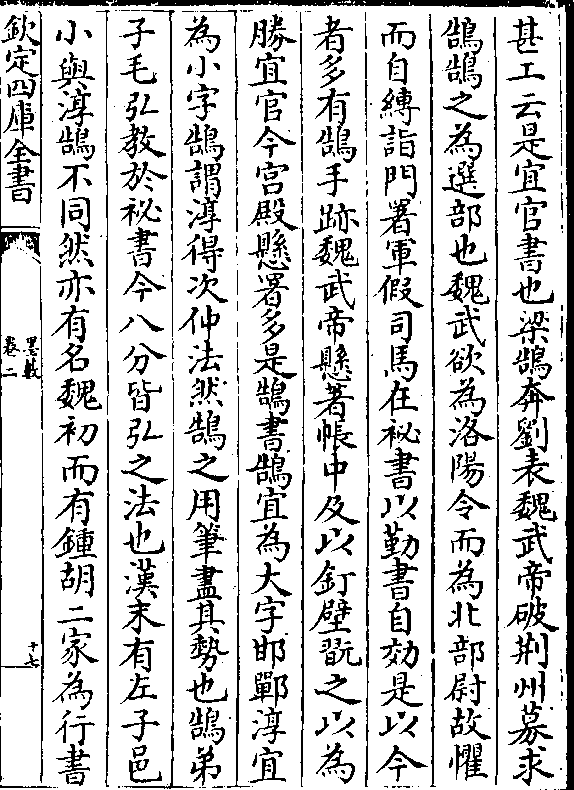 甚工云是宜官書也梁鵠奔劉表魏武帝破荆州募求
鵠鵠之為選部也魏武欲為洛陽令而為北部尉故懼
而自縛詣門署軍假司馬在祕書以勤書自効是以今
者多有鵠手跡魏武帝懸著帳中及以釘壁翫之以為
勝宜官今宫殿懸署多是鵠書鵠宜為大字邯鄲淳宜
為小字鵠謂淳得次仲法然鵠之用筆盡其勢也鵠弟
子毛弘教於祕書今八分皆弘之法也漢末有左子邑
小與淳鵠不同然亦有名魏初而有鍾胡二家為行書
欽定四庫全書
墨藪
卷二
十七